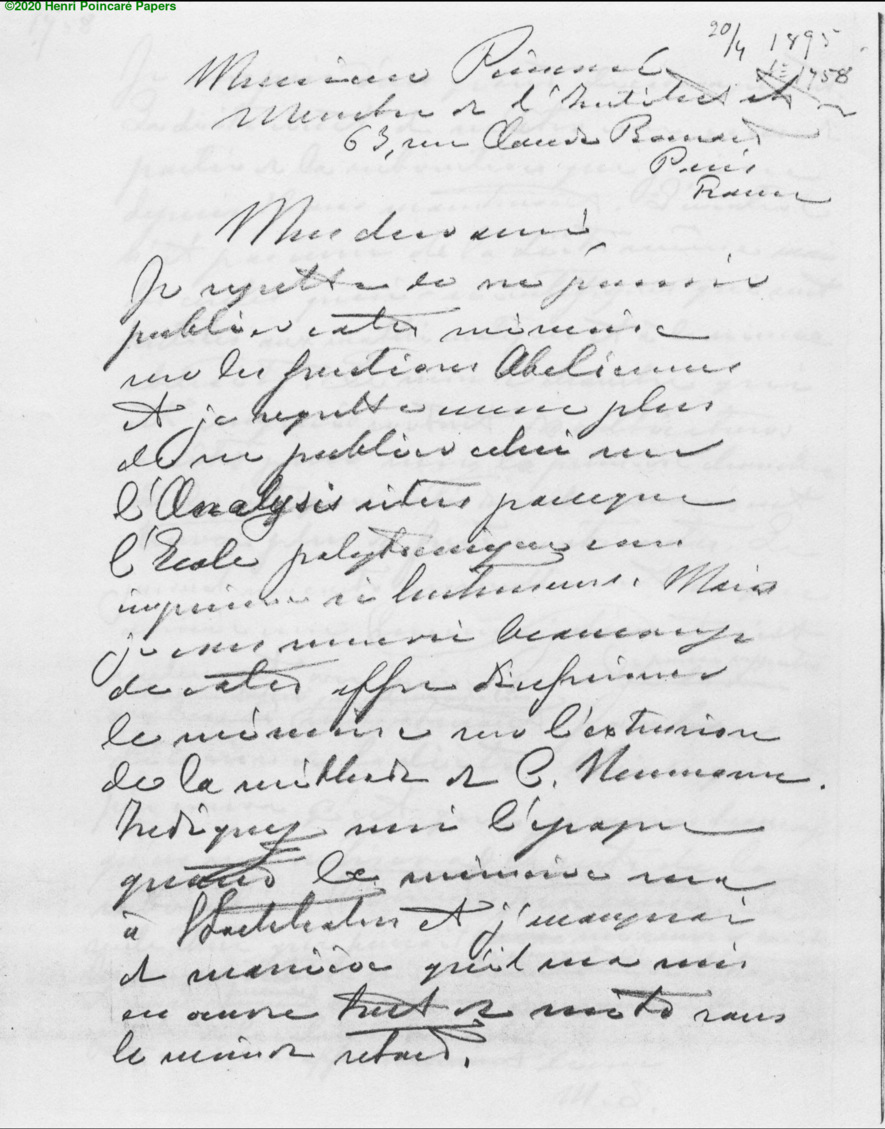 ©2020 Henri Poincaré Papers
20/4 1895
758
Monsieur Poincaré
Membre de l'Institut
63, rue Claude Bernard
Paris
France
Mon cher ami,
Je regrette de ne pouvoir
publier votre mémoire
sur les fonctions Abeliennes
et je regrette encore plus
de ne publier celui sur
l'Analysis situs parceque
l'Ecole polytechnique
imprime si lentement. Mais
je vous remercie beaucoup
de votre offre d'imprimer
le mémoire sur l'extension
de la méthode de C. Neumann.
Indiquez moi l'époque
quand le mémoire sera
à Stockholm et j'arrangerai
de manière qu'il sera mis
en œuvre tout de suite sans
le moindre retard.